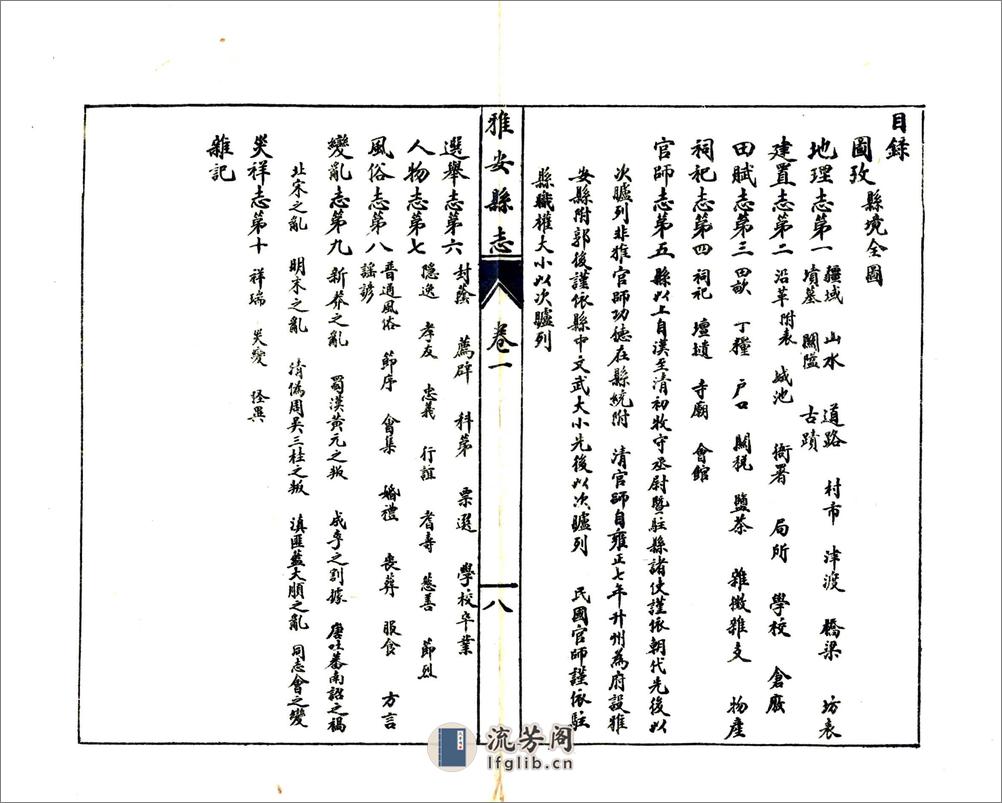 目録
圖攷 縣境全圖
地理志第一 疆域 山水 道路 村市 津渡 橋梁 坊表
墳墓 關隘 古蹟
建置志第二 沿革附表 城池 衙署 局所 學校 倉廒
田賦志第三 田畝 丁糧 戶口 關税 鹽茶 雜徴雜支 物產
祠祀志第四 祠祀 壇壝 寺廟 會館
官師志第五 縣以上自漢至清初牧守丞尉暨駐縣諸使謹依朝代先後以
次臚列非雅官師功德在縣統附 清官師自雍正七年升州為府設雅
安縣附郭後謹依縣中文武大小先後以次臚列 民國官師謹依駐
縣職權大小以次臚列
雅安縣志
卷一
八
選舉志第六 封蔭 薦辟 科第 票選 學校卒業
人物志第七 隱逸 孝友 忠義 行誼 耆壽 慈善 節烈
風俗志第八 普通風俗 節序 會集 婚禮 喪葬 服食 方言
謠諺
變亂志第九 新莽之亂 蜀漢黃元之叛 成李之割據 唐吐蕃南詔之禍
北宋之亂 明末之亂 清偽周吳三桂之叛 滇匪藍大順之亂 同志會之變
災祥志第十 祥瑞 災變 怪異
雜記
流芳阁
lfglib.cn